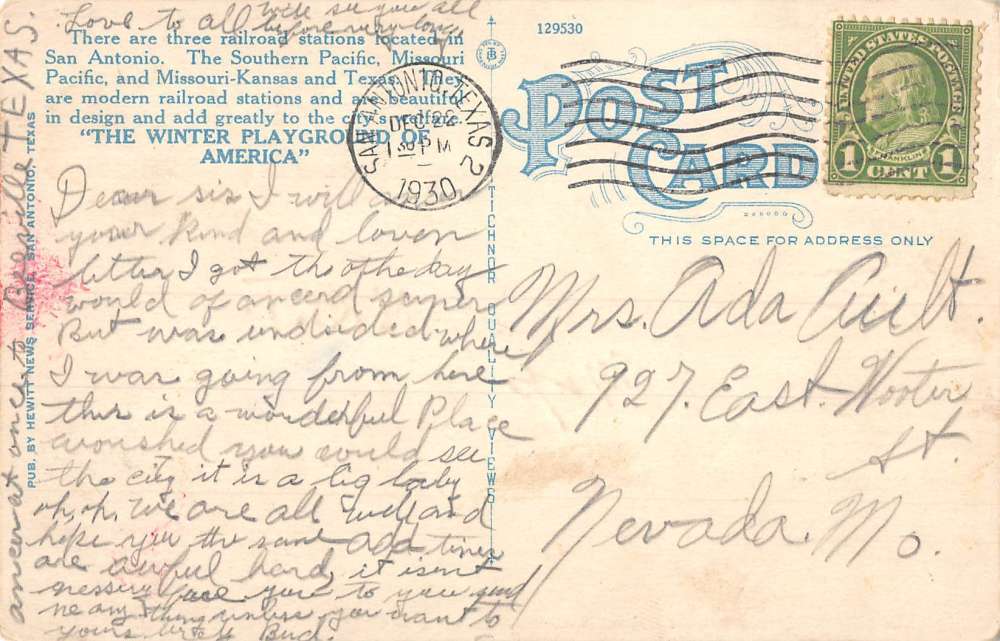 Love to all will see you all
before very long
There are three railroad stations located in
San Antonio. The Southern Pacific, Missouri
Pacific, and Missouri-Kansas and Texas. They
are modern railroad stations and are beautiful
in design and add greatly to the city's welfare.
"THE WINTER PLAYGROUND OF
AMERICA"
Dear sis I will
your kind and loven
letter I got the othe day
would of ancerd sooner
But was undsided where
I was going from here
this is a wonderful Place
wished you could see
the city it is a big baby
oh, oh. We are all well and
hope you the same Ada times
are awful hard, it isent
nessery for you to you send
me any thing unless you want to
yours Bud.
ancer at once to Beeville TEXAS.
PUB. BY HEWITT NEWS SERVICE, SAN ANTONIO, TEXAS
TICHNOR QUALITY VIEWS
129530
SAN ANTONIO, TEXAS 2
DEC 22
1 PM
1930
POST
CARD
THIS SPACE FOR ADDRESS ONLY
UNITED STATES POSTAGE
FRANKLIN
1 CENT 1
Mrs. Ada Ault.
927. East. Wooter
st.
Nevada. Mo.